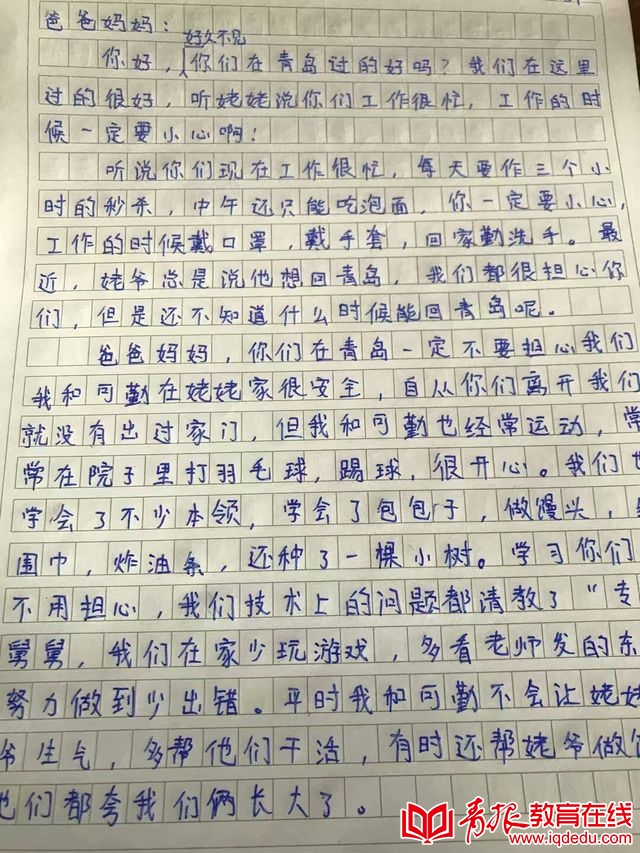 爸爸妈妈：
好久不见
你好，你们在青岛过的好吗？我们在这里
过的很好，听姥姥说你们工作很忙，工作的时
候一定要小心啊！
听说你们现在工作很忙，每天要作三个小
时的秒杀，中午还只能吃泡面，你一定要小心，
工作的时候戴口罩，戴手套，回家勤洗手。最
近，姥爷总是说他想回青岛，我们都很担心你
们，但是还不知道什么时候能回青岛呢。
爸爸妈妈，你们在青岛一定不要担心我们
我和可勤在姥姥家很安全，自从你们离开我们
就没有出过家门，但我和可勤也经常运动，常
常在院子里打羽毛球，踢球，很开心。我们也
学会了不少本领，学会了包包子，做馒头，
围巾，炸油条，还种了一棵小树。学习你们
不用担心，我们技术上的问题都请教了“专
舅舅，我们在家少玩游戏，多看老师发的东
努力做到少出错。平时我和可勤不会让姥姥
爷生气，多帮他们干活，有时还帮姥爷做饭
他们都夸我们俩长大了。
青报教育在线
www.iqdedu.com